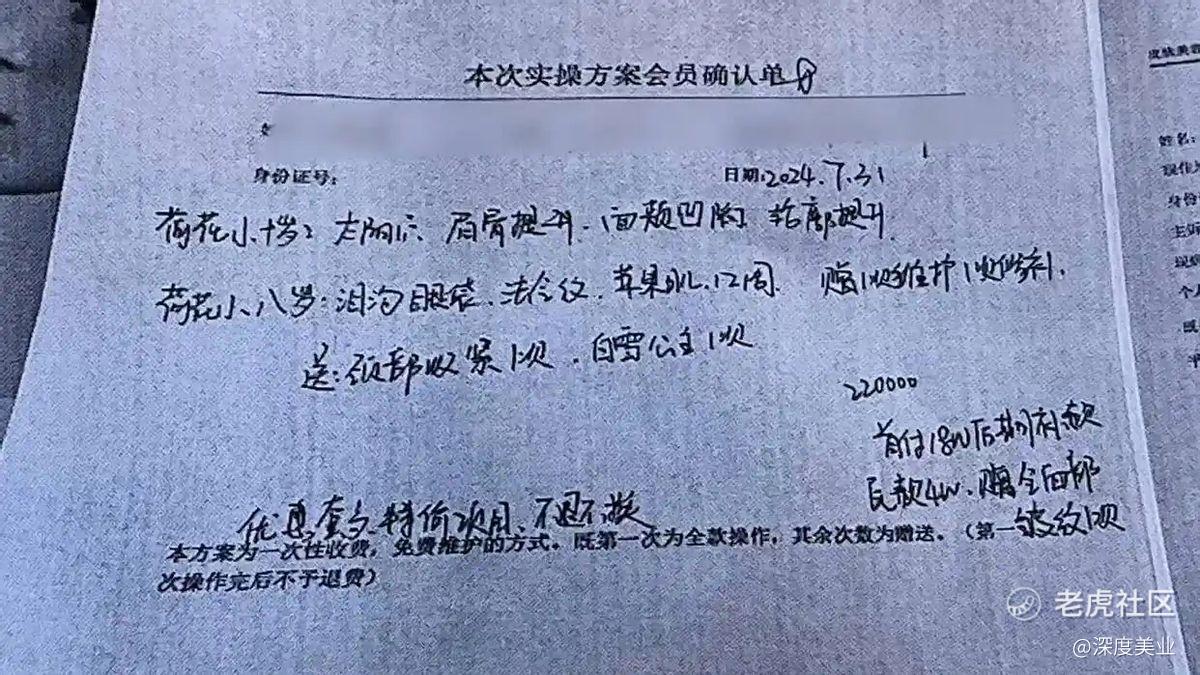 本次实操方案会员确认单
身份证号:
日期:2024.7.31
荷花小十岁: 太阳穴、眉骨提升、面颊凹陷 提升
荷花小八岁:泪沟眼袋、法令纹、苹果肌、12周 赠1次维护1次
送:颈部收紧1次、白雪公主1次
220000
首付18W后期补款
4W、赠全面部
皱纹1次
优惠套 特价项目、不退不换
本方案为一次性收费,免费维护的方式。既第一次为全款操作,其余次数为赠送。(第一
次操作完后不予退费)
皮肤美容
姓名:
身份
老虎社区
@深度美业